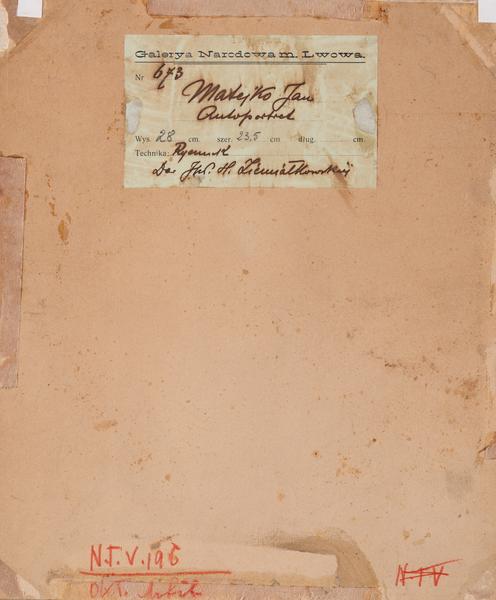 Galerya Narodowa m. Lwowa.
Nr 673
Matejko Jan
Autoportret
Wys. 28 cm. szer. 23,5 cm dług. cm.
Technika: Rysunek
Dar Jhr. H. Ziemiałkowskiej
N.T.V.196
OKT.
N T V